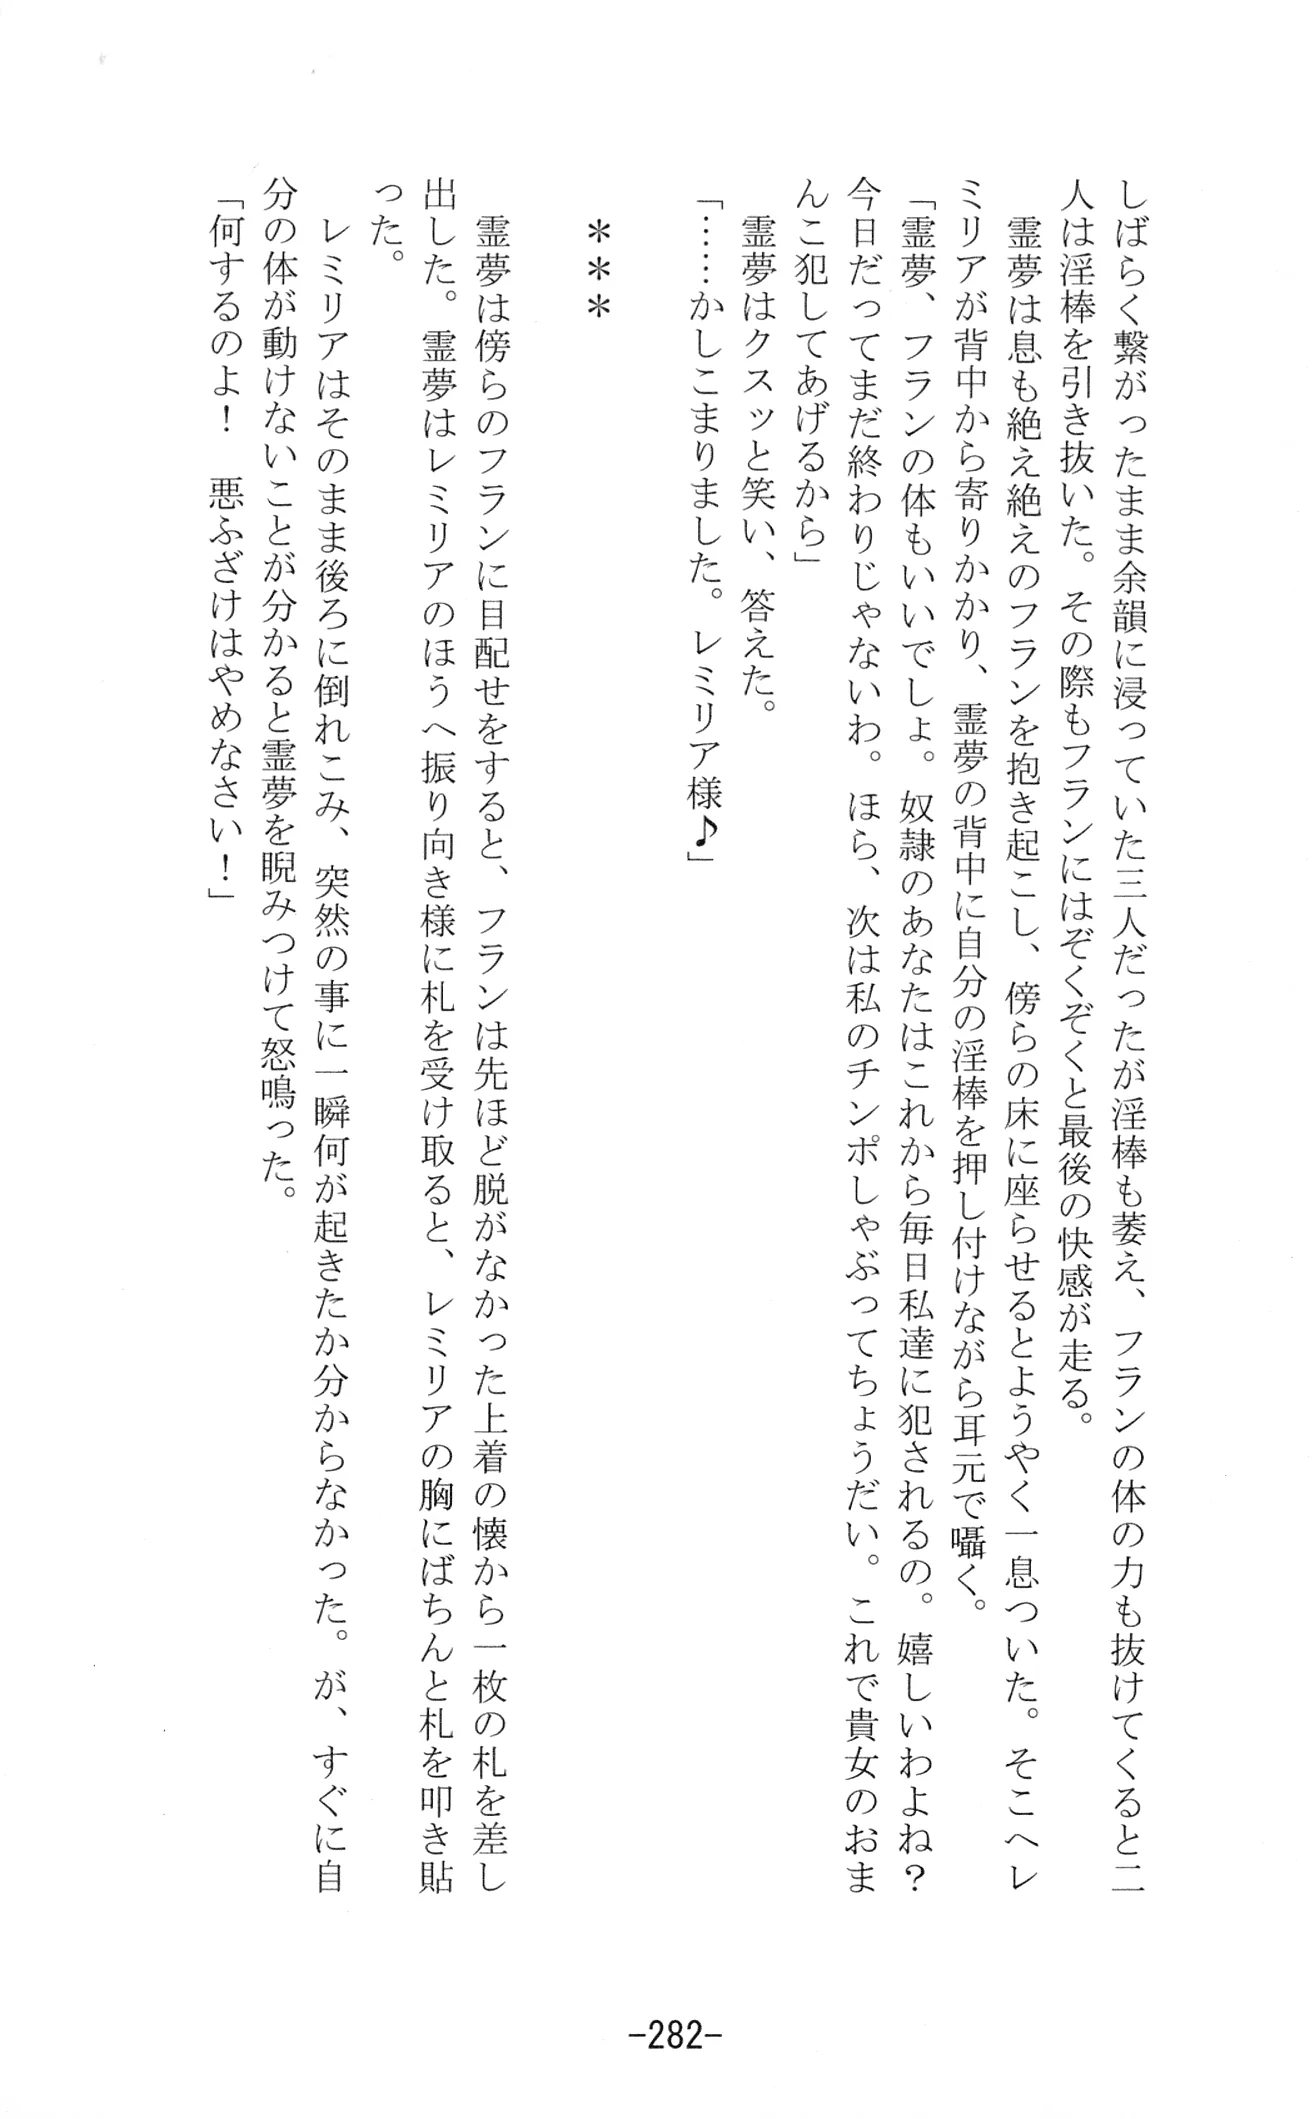 しばらく繋がったまま余韻に浸っていた三人だったが淫棒も萎え、フランの体の力も抜けてくると二
人は淫棒を引き抜いた。その際もフランにはぞくぞくと最後の快感が走る。
　霊夢は息も絶え絶えのフランを抱き起こし、傍らの床に座らせるとようやく一息ついた。そこへレ
ミリアが背中から寄りかかり、霊夢の背中に自分の淫棒を押し付けながら耳元で囁く。
「霊夢、フランの体もいいでしょ。奴隷のあなたはこれから毎日私達に犯されるの。嬉しいわよね？
今日だってまだ終わりじゃないわ。ほら、次は私のチンポしゃぶってちょうだい。これで貴女のおま
んこ犯してあげるから」
　霊夢はクスッと笑い、答えた。
「……かしこまりました。レミリア様♪」
＊＊＊
　霊夢は傍らのフランに目配せをすると、フランは先ほど脱がなかった上着の懐から一枚の札を差し
出した。霊夢はレミリアのほうへ振り向き様に札を受け取ると、レミリアの胸にばちんと札を叩き貼
った。
　レミリアはそのまま後ろに倒れこみ、突然の事に一瞬何が起きたか分からなかった。が、すぐに自
分の体が動けないことが分かると霊夢を睨みつけて怒鳴った。
「何するのよ！　悪ふざけはやめなさい！」
-282-